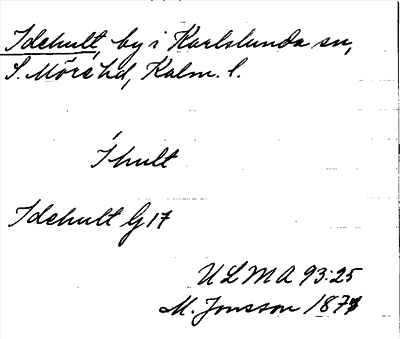 Idehult, by i Karlslunda sn,
S. Möre hd, Kalm. l.
Íhult
Idehult G 17
ULMA 93:25
M. Jonsson 1877